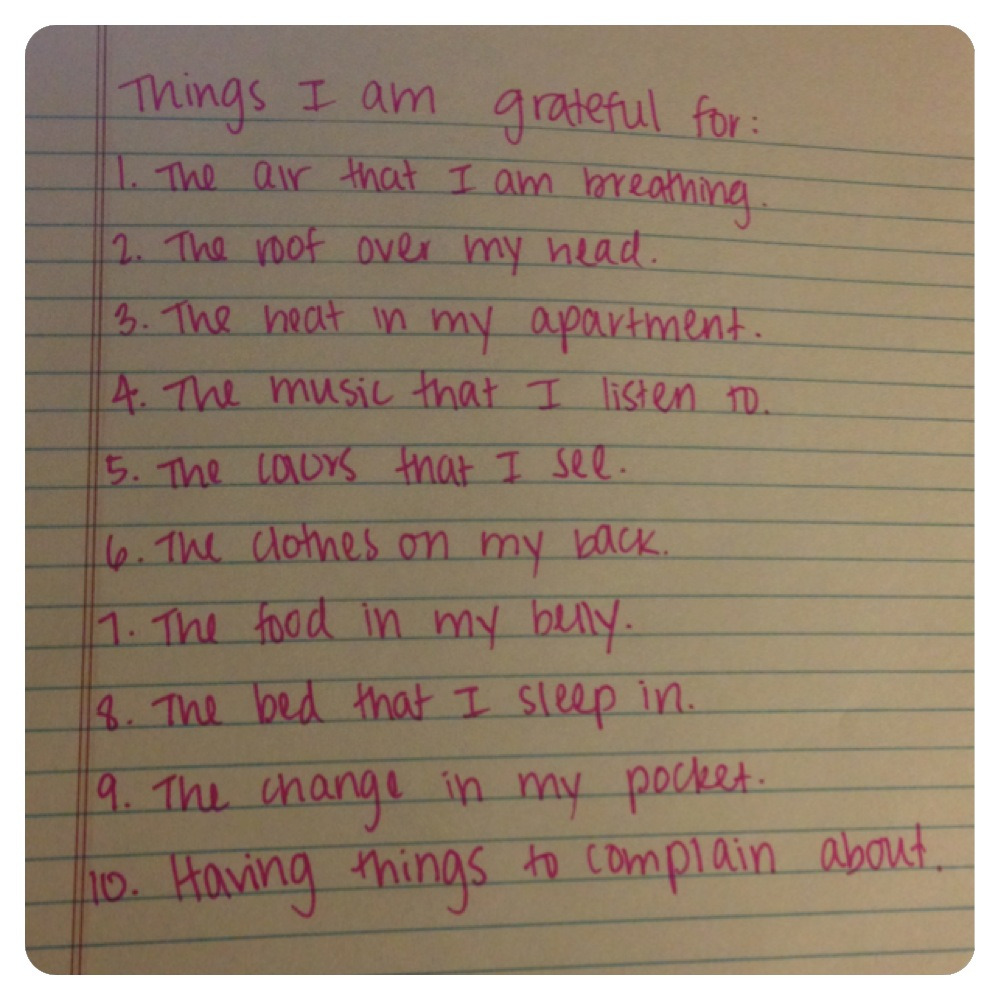 Things I am grateful for:
1. The air that I am breathing.
2. The roof over my head.
3. The heat in my apartment.
4. The music that I listen to.
5. The colors that I see.
6. The clothes on my back.
7. The food in my belly.
8. The bed that I sleep in.
9. The change in my pocket.
10. Having things to complain about.